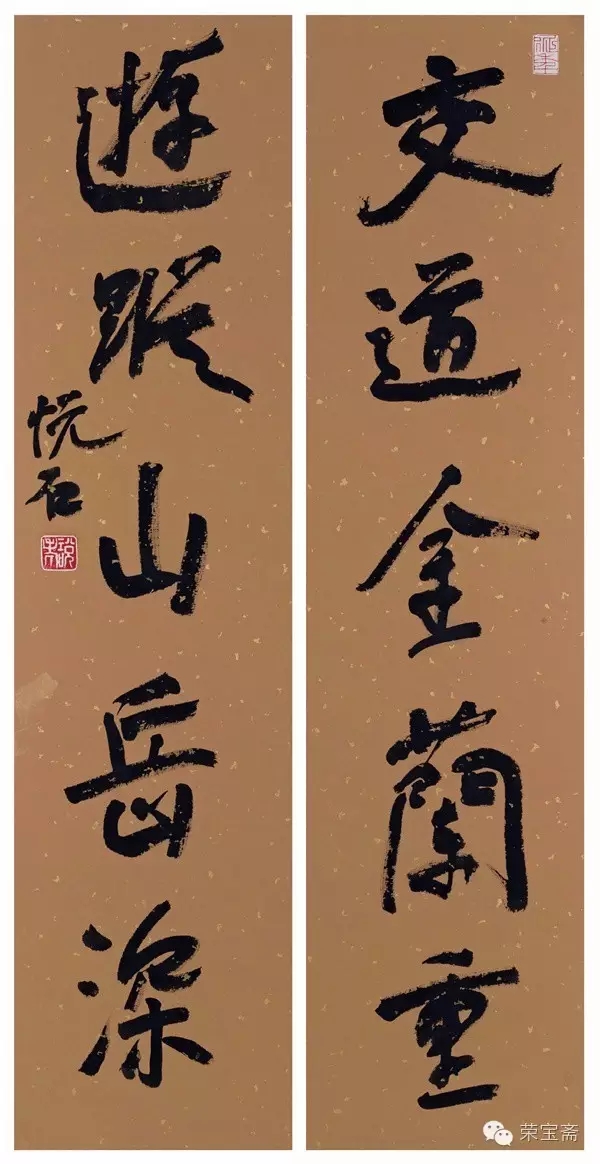 交道金蘭重
遊蹤山岳深
悦石
荣宝斋